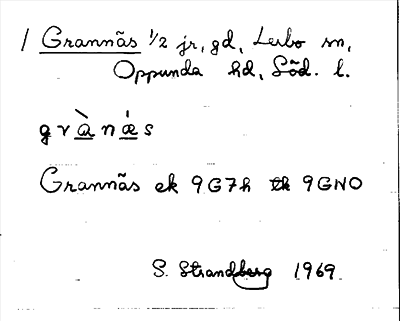 / Grannäs 1/2 jr, gd, Lerbo sn,
Oppunda hd, Söd. l.
g r à n ǽ s
Grannäs ek 9G7h 9GNO
S. Strandberg 1969.